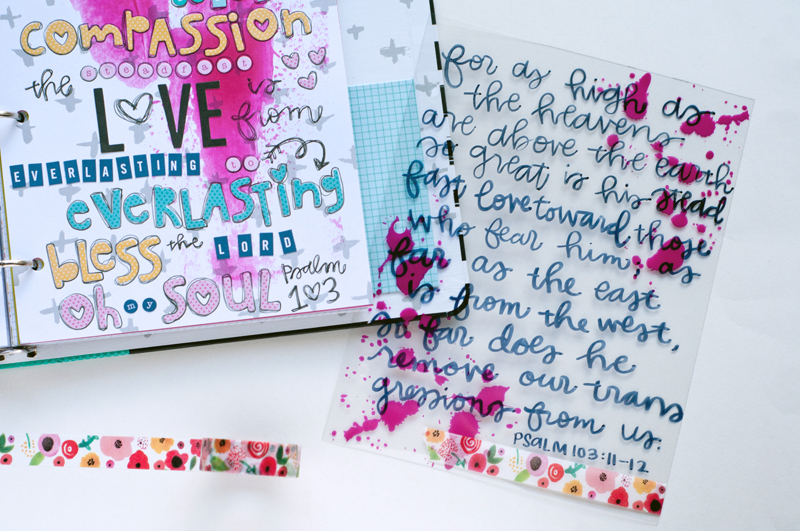 compassion
the steadfast
LOVE is
from
EVERLASTING to
everlasting
bless the LORD
oh my SOUL
Psalm
103
for as high as
the heavens
are above the earth
so great is his stead
fast love toward those
who fear him; as
far as the east
is from the west,
so far does he
remove our trans
gressions from us.
PSALM 103:11-12